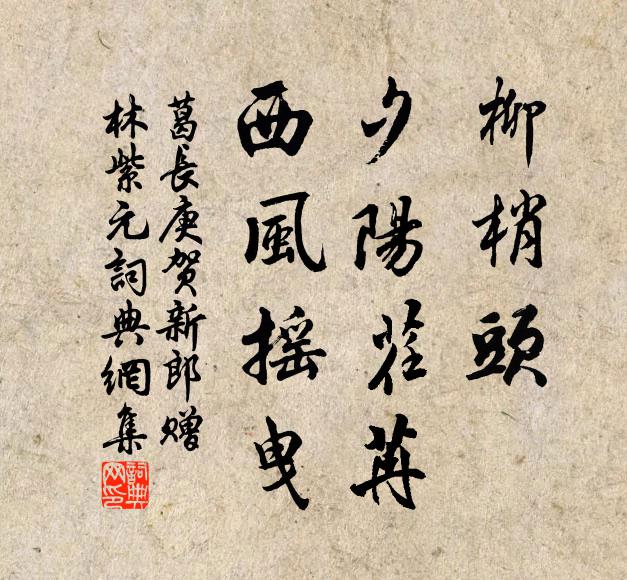 柳梢頭
夕陽荏苒
西風摇曳
葛長庚賀新郎贈
林紫元詞典網集
詞典網印